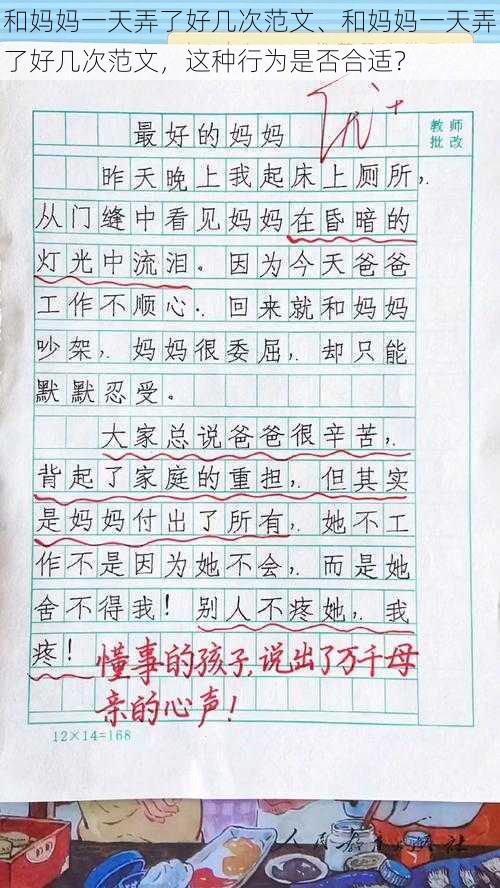 和妈妈一天弄了好几次范文、和妈妈一天弄
了好几次范文，这种行为是否合适？
优+
教师
批改
最好的妈妈
昨天晚上我起床上厕所，
从门缝中看见妈妈在昏暗的
灯光中流泪。因为今天爸爸
工作不顺心．回来就和妈妈
吵架，妈妈很委屈，却只能
默默忍受。
大家总说爸爸很辛苦，
背起了家庭的重担，但其实
是妈妈付出了所有，她不工
作不是因为她不会，而是她
舍不得我！别人不疼她，我
疼！
懂事的孩子，说出了万千母
亲的心声！
12×14=168
人民教育出版社